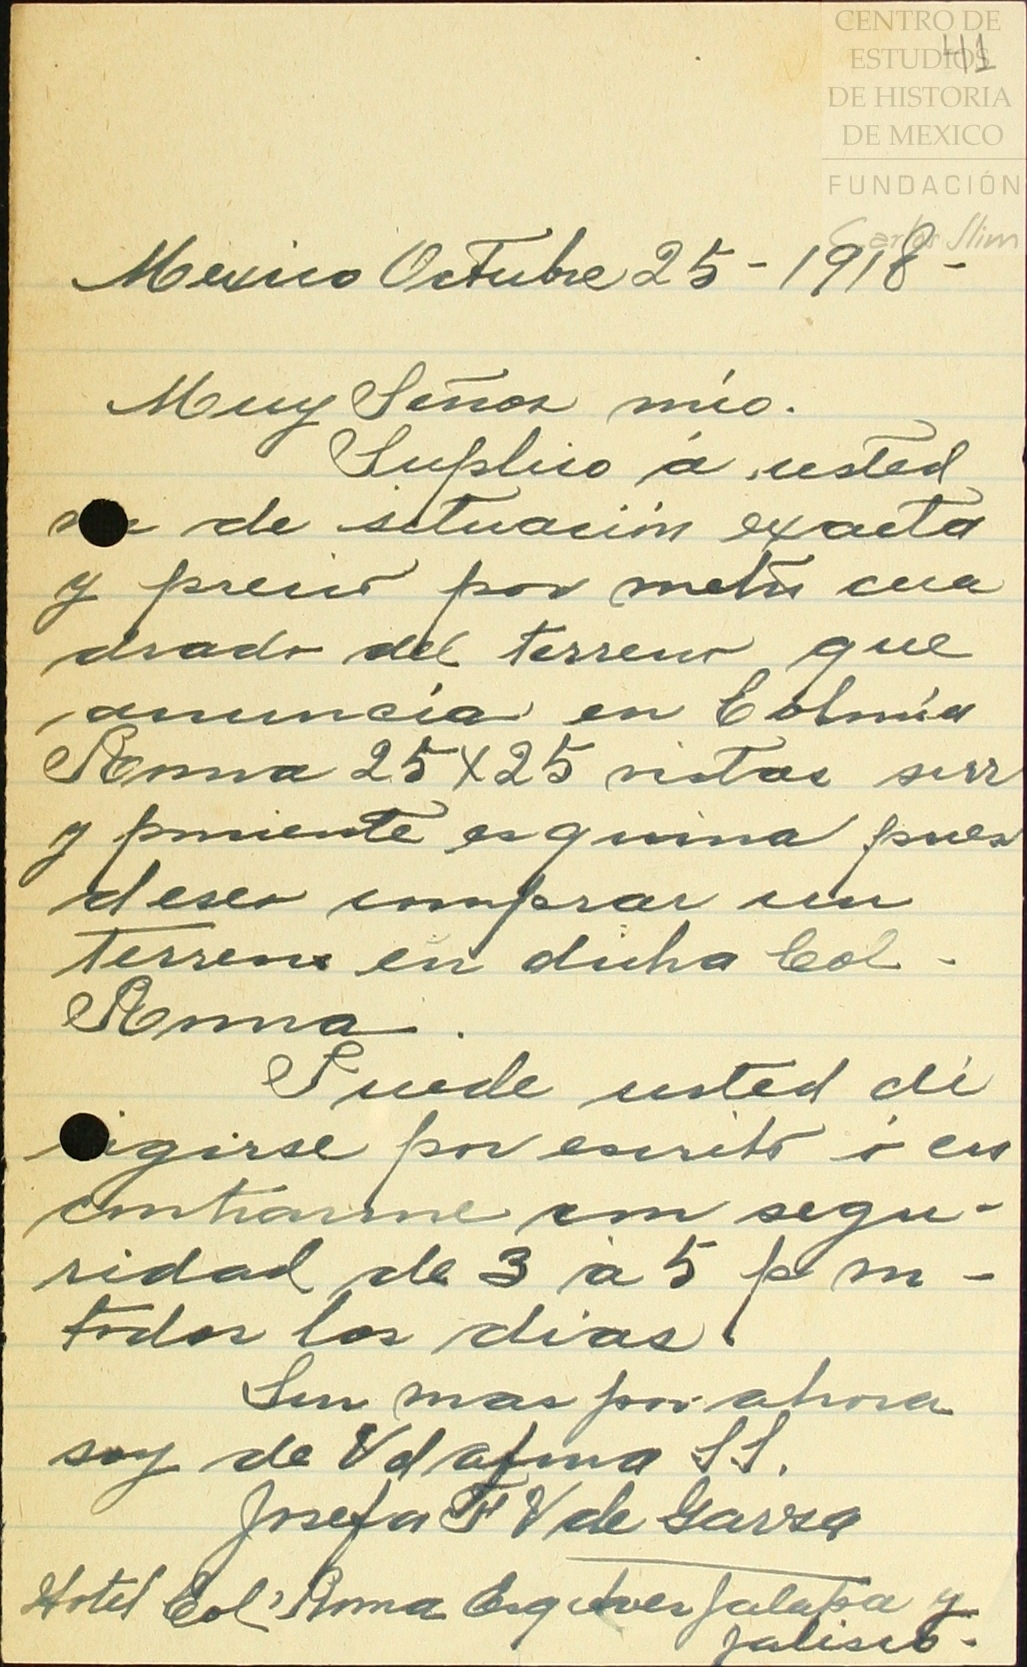 CENTRO DE
ESTUDIOS
DE HISTORIA
DE MEXICO
FUNDACIÓN
Carlos Slim
41
Mexico Octubre 25 - 1918 -
Muy Señor mío.
Suplico á usted
de situación exacta
y precio por metro cua
drado del terreno que
anuncía en Colonia
Roma 25 X 25 vistas surr
y poniente esquina pues
deseo comprar un
terreno en dicha Col -
Roma.
Puede usted di
rigirse por escrito ó en
contrarme con segu-
ridad de 3 á 5 p m -
todos los dias.
Sin mas por ahora
soy de Vd afma S S.
Josefa F V de Garza
Hotel Col' Roma Jalapa y
Jalisco.